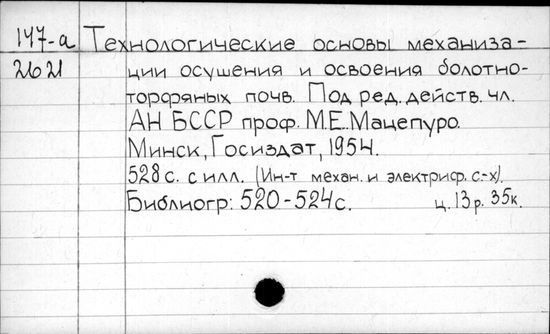 147-а Технологические основы механиза-
2621 ции осушения и освоения болотно-
торфяных почв. Под ред. действ. чл.
АН БССР проф. М.Е. Мацепуро.
Минск, Госиздат, 1954.
528 с. с илл. (Ин-т механ. и электриф. с.-х).
Библиогр: 520-524 с. ц. 13 р. 35к.